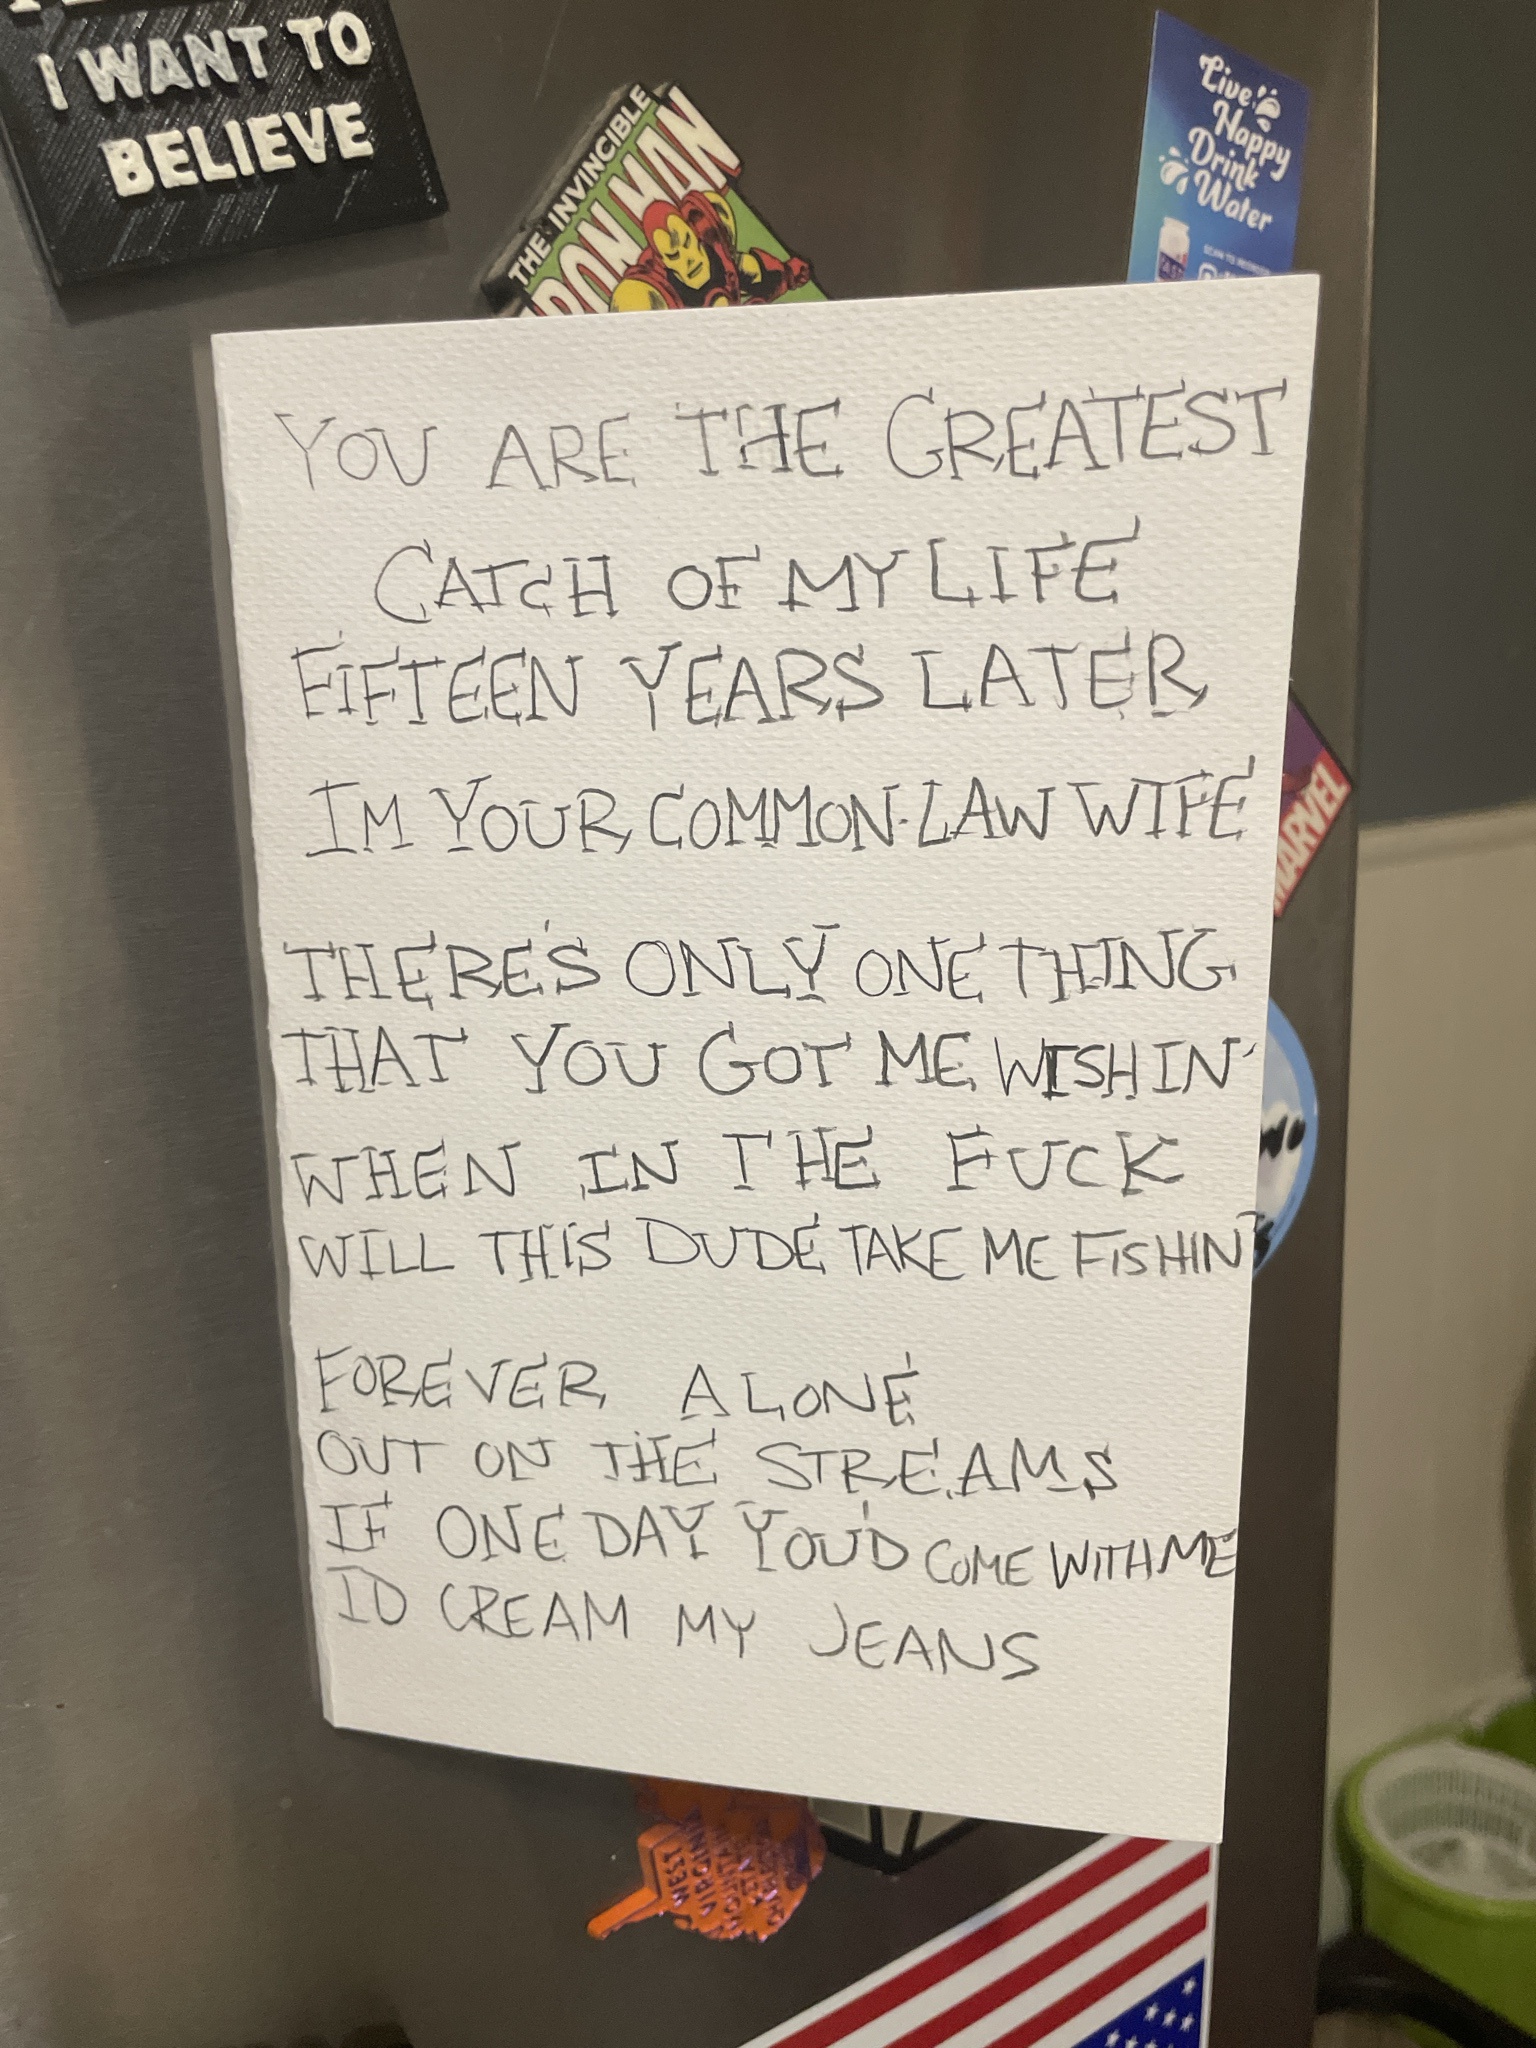 I WANT TO
BELIEVE
THE INVINCIBLE
IRON MAN
Live
Happy
Drink
Water
YOU ARE THE GREATEST
CATCH OF MY LIFE
FIFTEEN YEARS LATER
IM YOUR COMMON-LAW WIFE
THERE'S ONLY ONE THING
THAT YOU GOT ME WISHIN'
WHEN IN THE FUCK
WILL THIS DUDE TAKE ME FISHIN'
FOREVER ALONE
OUT ON THE STREAMS
IF ONE DAY YOU'D COME WITH ME
ID CREAM MY JEANS
MARVEL
WEST
VIRGINIA